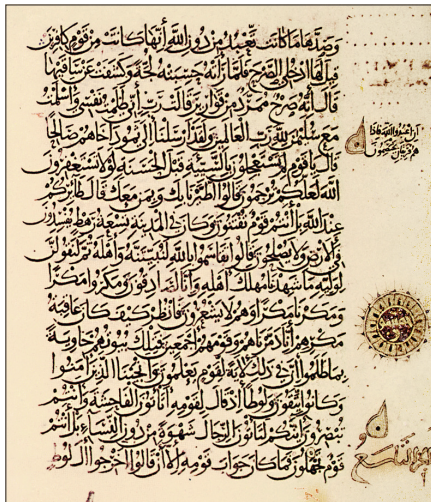 وصدها ما كانت تعبد من دون الله إنها كانت من قوم كافرين
قيل لها ادخلي الصرح فلما رأته حسبته لجة وكشفت عن ساقيها
قال إنه صرح ممرد من قوارير قالت رب إني ظلمت نفسي وأسلمت
مع سليمن لله رب العالمين ولقد أرسلنا إلى ثمود أخاهم صالحا
أن اعبدوا الله فإذا
هم فريقان يختصمون
قال يا قوم لم تستعجلون بالسيئة قبل الحسنة لولا تستغفرون
الله لعلكم ترحمون قالوا اطيرنا بك وبمن معك قال طائركم
عند الله بل أنتم قوم تفتنون وكان في المدينة تسعة رهط يفسدون
في الأرض ولا يصلحون قالوا تقاسموا بالله لنبيتنه وأهله ثم لنقولن
لوليه ما شهدنا مهلك أهله وإنا لصادقون ومكروا مكرا
ومكرنا مكرا وهم لا يشعرون فانظر كيف كان عاقبة
مكرهم أنا دمرناهم وقومهم أجمعين فتلك بيوتهم خاوية
بما ظلموا إن في ذلك لآية لقوم يعلمون وأنجينا الذين آمنوا
وكانوا يتقون ولوطا إذ قال لقومه أتأتون الفاحشة وأنتم
تبصرون أئنكم لتأتون الرجال شهوة من دون النساء بل أنتم
قوم تجهلون فما كان جواب قومه إلا أن قالوا أخرجوا آل لوط